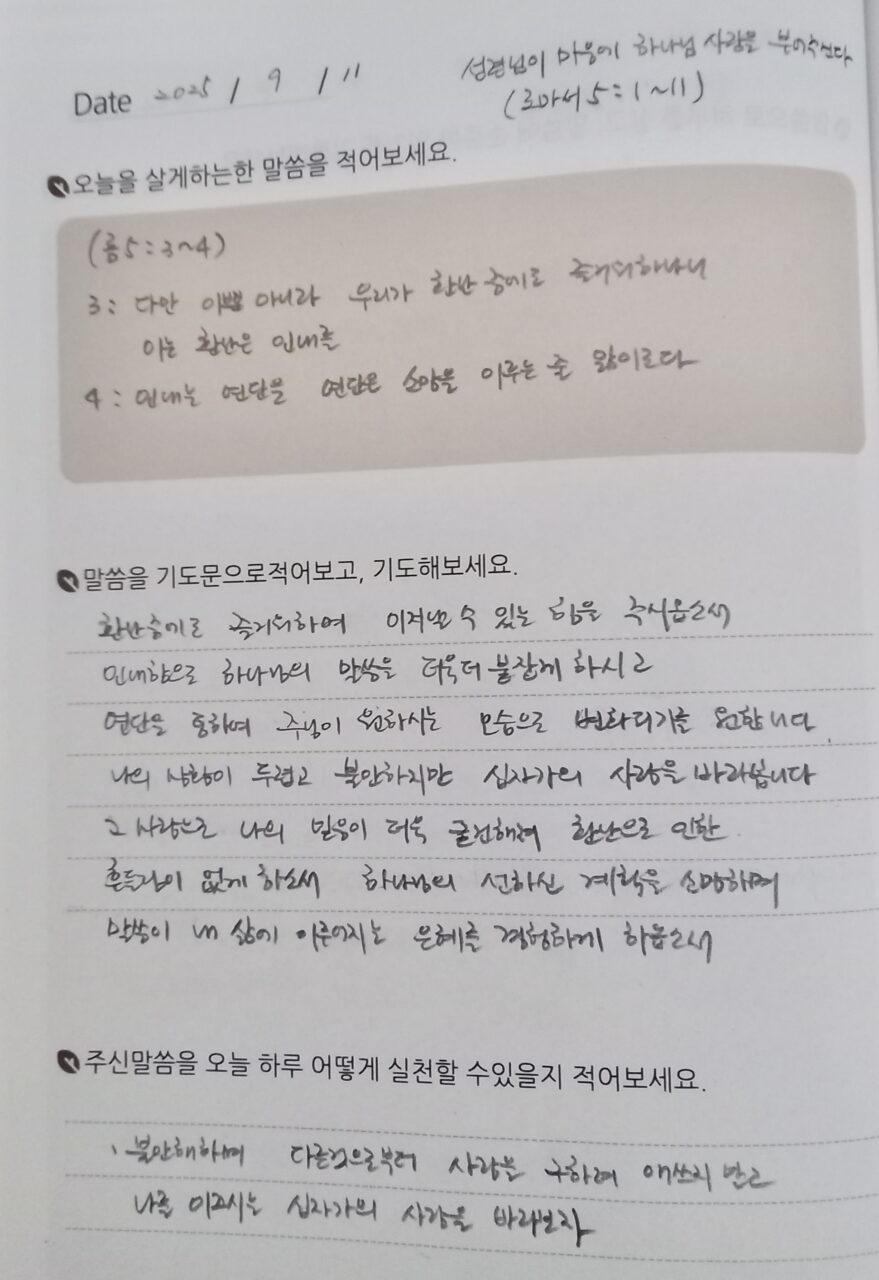 성령님이 마음에 하나님 사랑을 부어주신다
(로마서 5:1~11)
Date 2025 / 9 / 11
오늘을 살게하는한 말씀을 적어보세요.
(롬5:3~4)
3: 다만 이뿐 아니라 우리가 환난 중에도 즐거워하나니
이는 환난은 인내를
4: 인내는 연단을 연단은 소망을 이루는 줄 앎이로다
말씀을 기도문으로적어보고, 기도해보세요.
환난중에도 즐거워하여 이겨낼 수 있는 힘을 주시옵소서
인내함으로 하나님의 말씀을 더욱더 붙잡게 하시고
연단을 통하여 주님이 원하시는 모습으로 변화되기를 원합니다
나의 상황이 두렵고 불안하지만 십자가의 사랑을 바라봅니다
그 사랑으로 나의 믿음이 더욱 굳건해져 환난으로 인한
흔들림이 없게 하소서 하나님의 선하신 계획을 소망하며
말씀이 내 삶에 이루어지는 은혜를 경험하게 하옵소서
주신말씀을 오늘 하루 어떻게 실천할 수있을지 적어보세요.
불안해하며 다른것으로부터 사랑을 구하려 애쓰지 말고
나를 이끄시는 십자가의 사랑을 바라보자